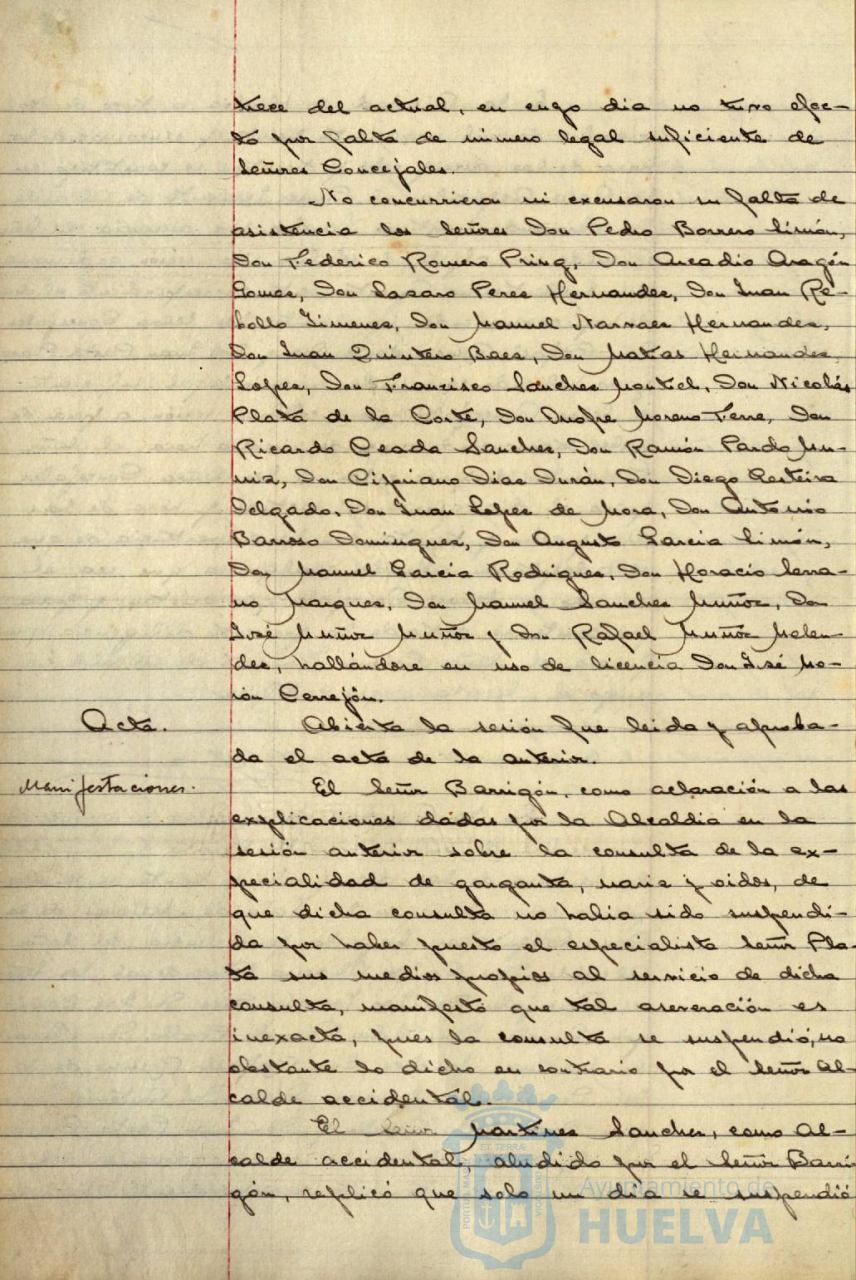 trece del actual, en cuyo dia no tuvo efec-
to por falta de número legal suficiente de
Señores Concejales.
No concurrieron ni excusaron su falta de
asistencia los Señores Don Pedro Borrero Limón,
Don Federico Romero Pring, Don Arcadio Aragón
Gomez, Don Lazaro Perez Hernandez, Don Juan Re-
bollo Jimenez, Don Manuel Narvaez Hernandez,
Don Juan Quintero Baez, Don Matias Hernandez
Lopez, Don Francisco Sanchez Montel, Don Nicolás
Plata de la Corte, Don Onofre Moreno Ferre, Don
Ricardo Ceada Sanchez, Don Ramón Pardo Mu-
ñiz, Don Cipriano Diaz Durán, Don Diego Resteira
Delgado, Don Juan Lopez de Mora, Don Antonio
Barroso Dominguez, Don Augusto Garcia Limón,
Don Manuel Garcia Rodriguez, Don Horacio Serra-
no Marquez, Don Manuel Sanchez Muñoz, Don
José Muñoz Muñoz y Don Rafael Muñoz Melen-
dez, hallándose en uso de licencia Don José Mo-
rón Cerrejón.
Acta.
Abierta la sesión fue leida y aproba-
da el acta de la anterior.
Manifestaciones.
El Señor Barrigón, como aclaración a las
explicaciones dadas por la Alcaldia en la
sesión anterior sobre la consulta de la ex-
pecialidad de garganta, nariz y oidos, de
que dicha consulta no habia sido suspendi-
da por haber puesto el especialista Señor Pla-
ta sus medios propios al servicio de dicha
consulta, manifestó que tal aseveración es
inexacta, pues la consulta se suspendió, no
obstante lo dicho en contrario por el Señor Al-
calde accidental.
El Señor Martinez Sanchez, como Al-
calde accidental, aludido por el Señor Barri-
gón, replicó que solo un dia se suspendió
Ayuntamiento de
HUELVA